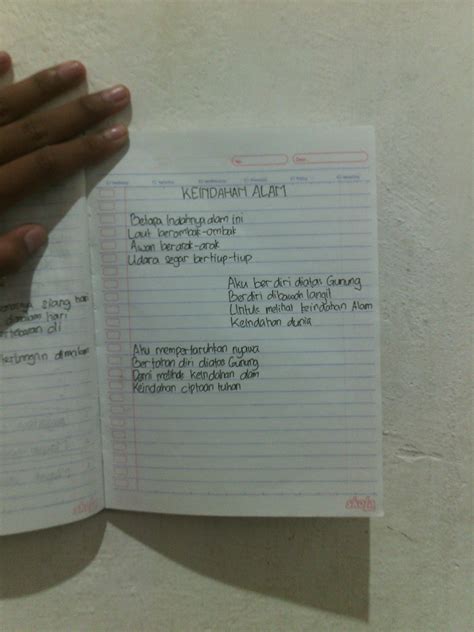 No.
Date.
KEINDAHAN ALAM
Betapa Indahnya alam ini
Laut berombak-ombak
Awan berarak-arak
Udara segar bertiup-tiup
Aku berdiri diatas Gunung
Berdiri dibawah langit
Untuk melihat keindahan Alam
Keindahan dunia
Aku mempertaruhkan nyawa
Bertahan diri diatas Gunung
Demi melihat keindahan alam
Keindahan ciptaan tuhan
siang hari
hari
di